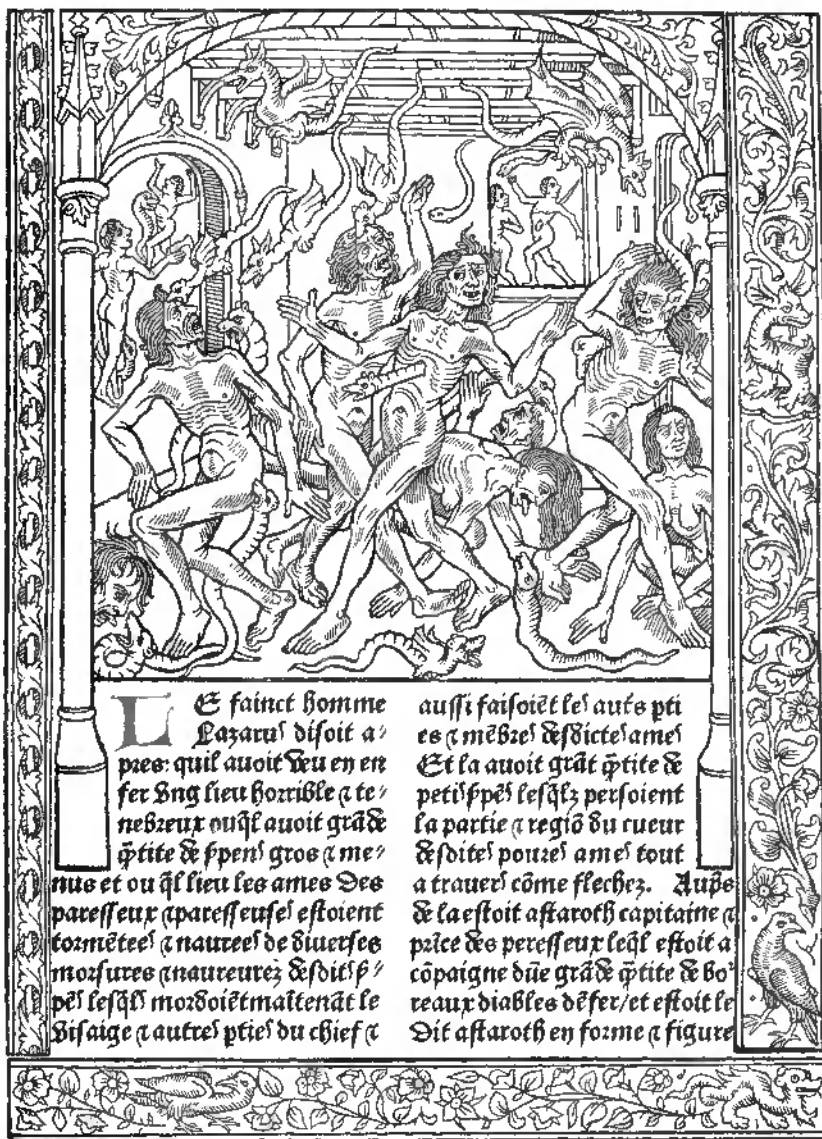 LE sainct homme
Lazarus disoit a⸗
pres: quil auoit veu en en
fer vng lieu horrible ⁊ te⸗
nebreux ouq̃l auoit grãde
q̃tite de ſpens gros ⁊ me⸗
nus et ou q̃l lieu les ames des
paresseux ⁊ paresseuses estoient
tormẽtees ⁊ naurees de diuerses
morsures ⁊ naureurez desditsſ⸗
pẽs lesq̃ls mordoiẽt maĩtenãt le
visaige ⁊ autres pties du chief ⁊
aussi faisoiẽt les autẽs pti
es ⁊ mẽbres desdictes ames
Et la auoit grãt q̃tite de
petis ſpẽs lesq̃lz persoient
la partie ⁊ regiõ du cueur
desdites poures ames tout
a trauers cõme flechez. Aupẽs
de la estoit astaroth capitaine ⁊
prĩce des peresseux leq̃l estoit a
cõpaigne dũe grãde q̃tite de bo⸗
reaux diables dẽfer/et estoit le
dit astaroth en forme ⁊ figure